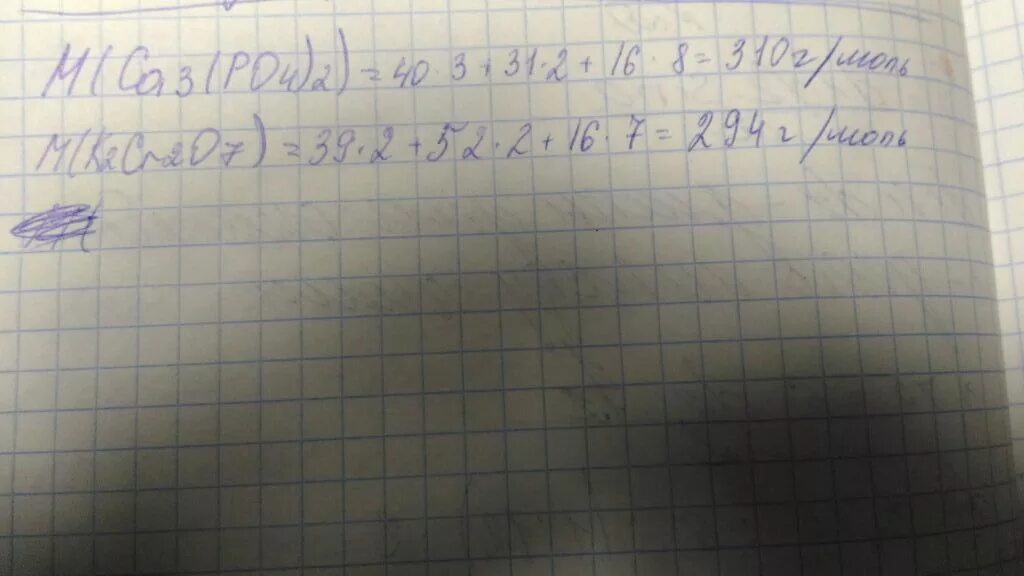 M(Ca3(PO4)2) = 40·3+31·2+16·8=310г/моль
M(K2Cr2O7) = 39·2+52·2+16·7=294г/моль